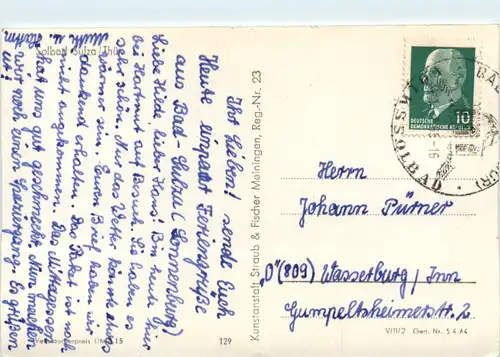 Ihr Lieben! sende Euch
heute einpaar Feriengrüße
aus Bad-Sulza (Sonnenburg)
Liebe Hilde, lieber Hans! Bin heute hier
bei Hartmut auf Besuch. Sie haben es
sehr schön. Nur das Wetter könnte etwas
wärmer sein. Euren Brief haben wir
dankend erhalten. Das Paket ist noch
nicht angekommen. Das Mittagessen
hat uns gut geschmeckt. Nun machen
wir noch einen Spaziergang. Es grüßen
Solbad Sulza/Thür.
Verbraucherpreis DM 0,15
129
Kunstanstalt Straub & Fischer Meiningen, Reg.-Nr. 23
10
DEUTSCHE
DEMOKRATISCHE REPUBLIK
SOLBAD
Herrn
Johann Pürner
„O“ (809) Wasserburg/Inn
Gumpeltsheimerstr. 2
V/11/2 Gen. Nr. S 4 64